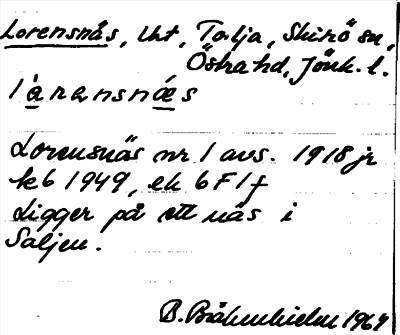 Lorensnäs, lht, Tolja, Skirö sn,
Östra hd, Jönk. l.
lὰrənsnǽs
Lorensnäs nr 1 avs. 1918 jr
kb 1949, ek 6F1f
Ligger på ett näs i
Saljen.
B. 1967